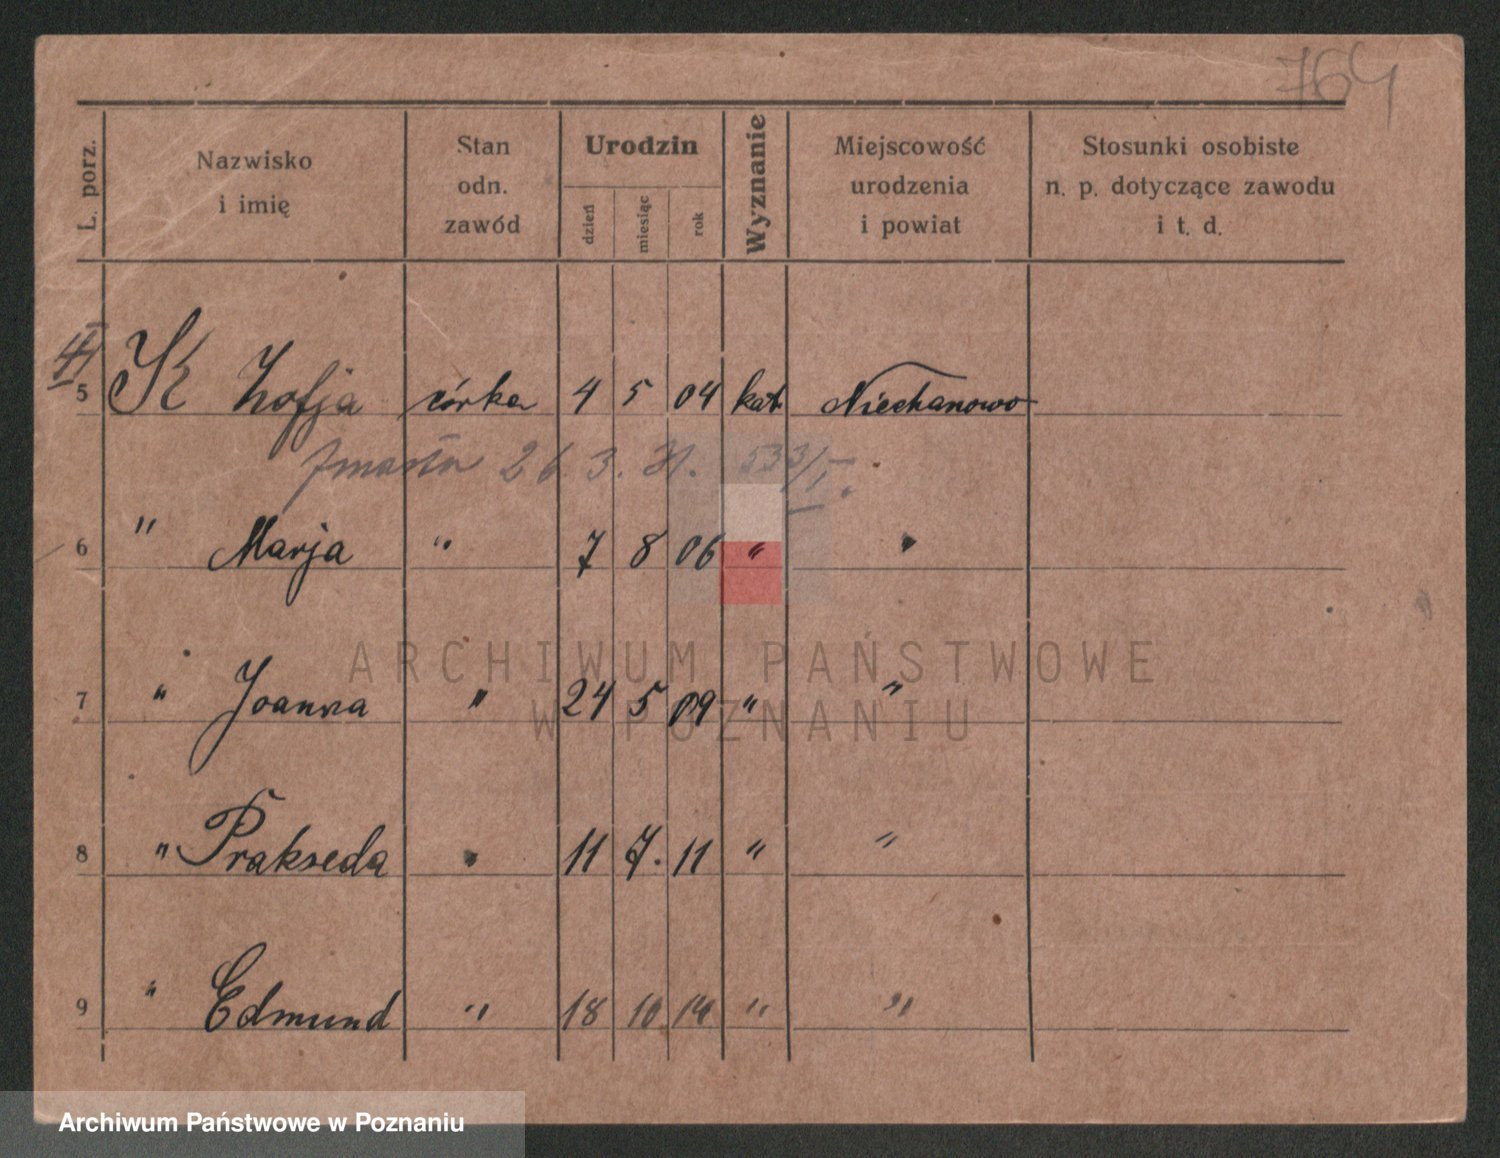 764
L. porz. Nazwisko i imię Stan odn. zawód Urodzin dzień miesiąc rok Wyznanie Miejscowość urodzenia i powiat Stosunki osobiste n. p. dotyczące zawodu i t. d.
5 K Zofja córka 4 5 04 kat. Niechanowo
zmarła 26.3.31. 533/I.
6 " Marja " 7 8 06 " "
7 " Joanna " 24 5 09 " "
8 " Prakseda " 11 7. 11 " "
9 " Edmund " 18 10 14 " "
ARCHIWUM PAŃSTWOWE
W POZNANIU
Archiwum Państwowe w Poznaniu